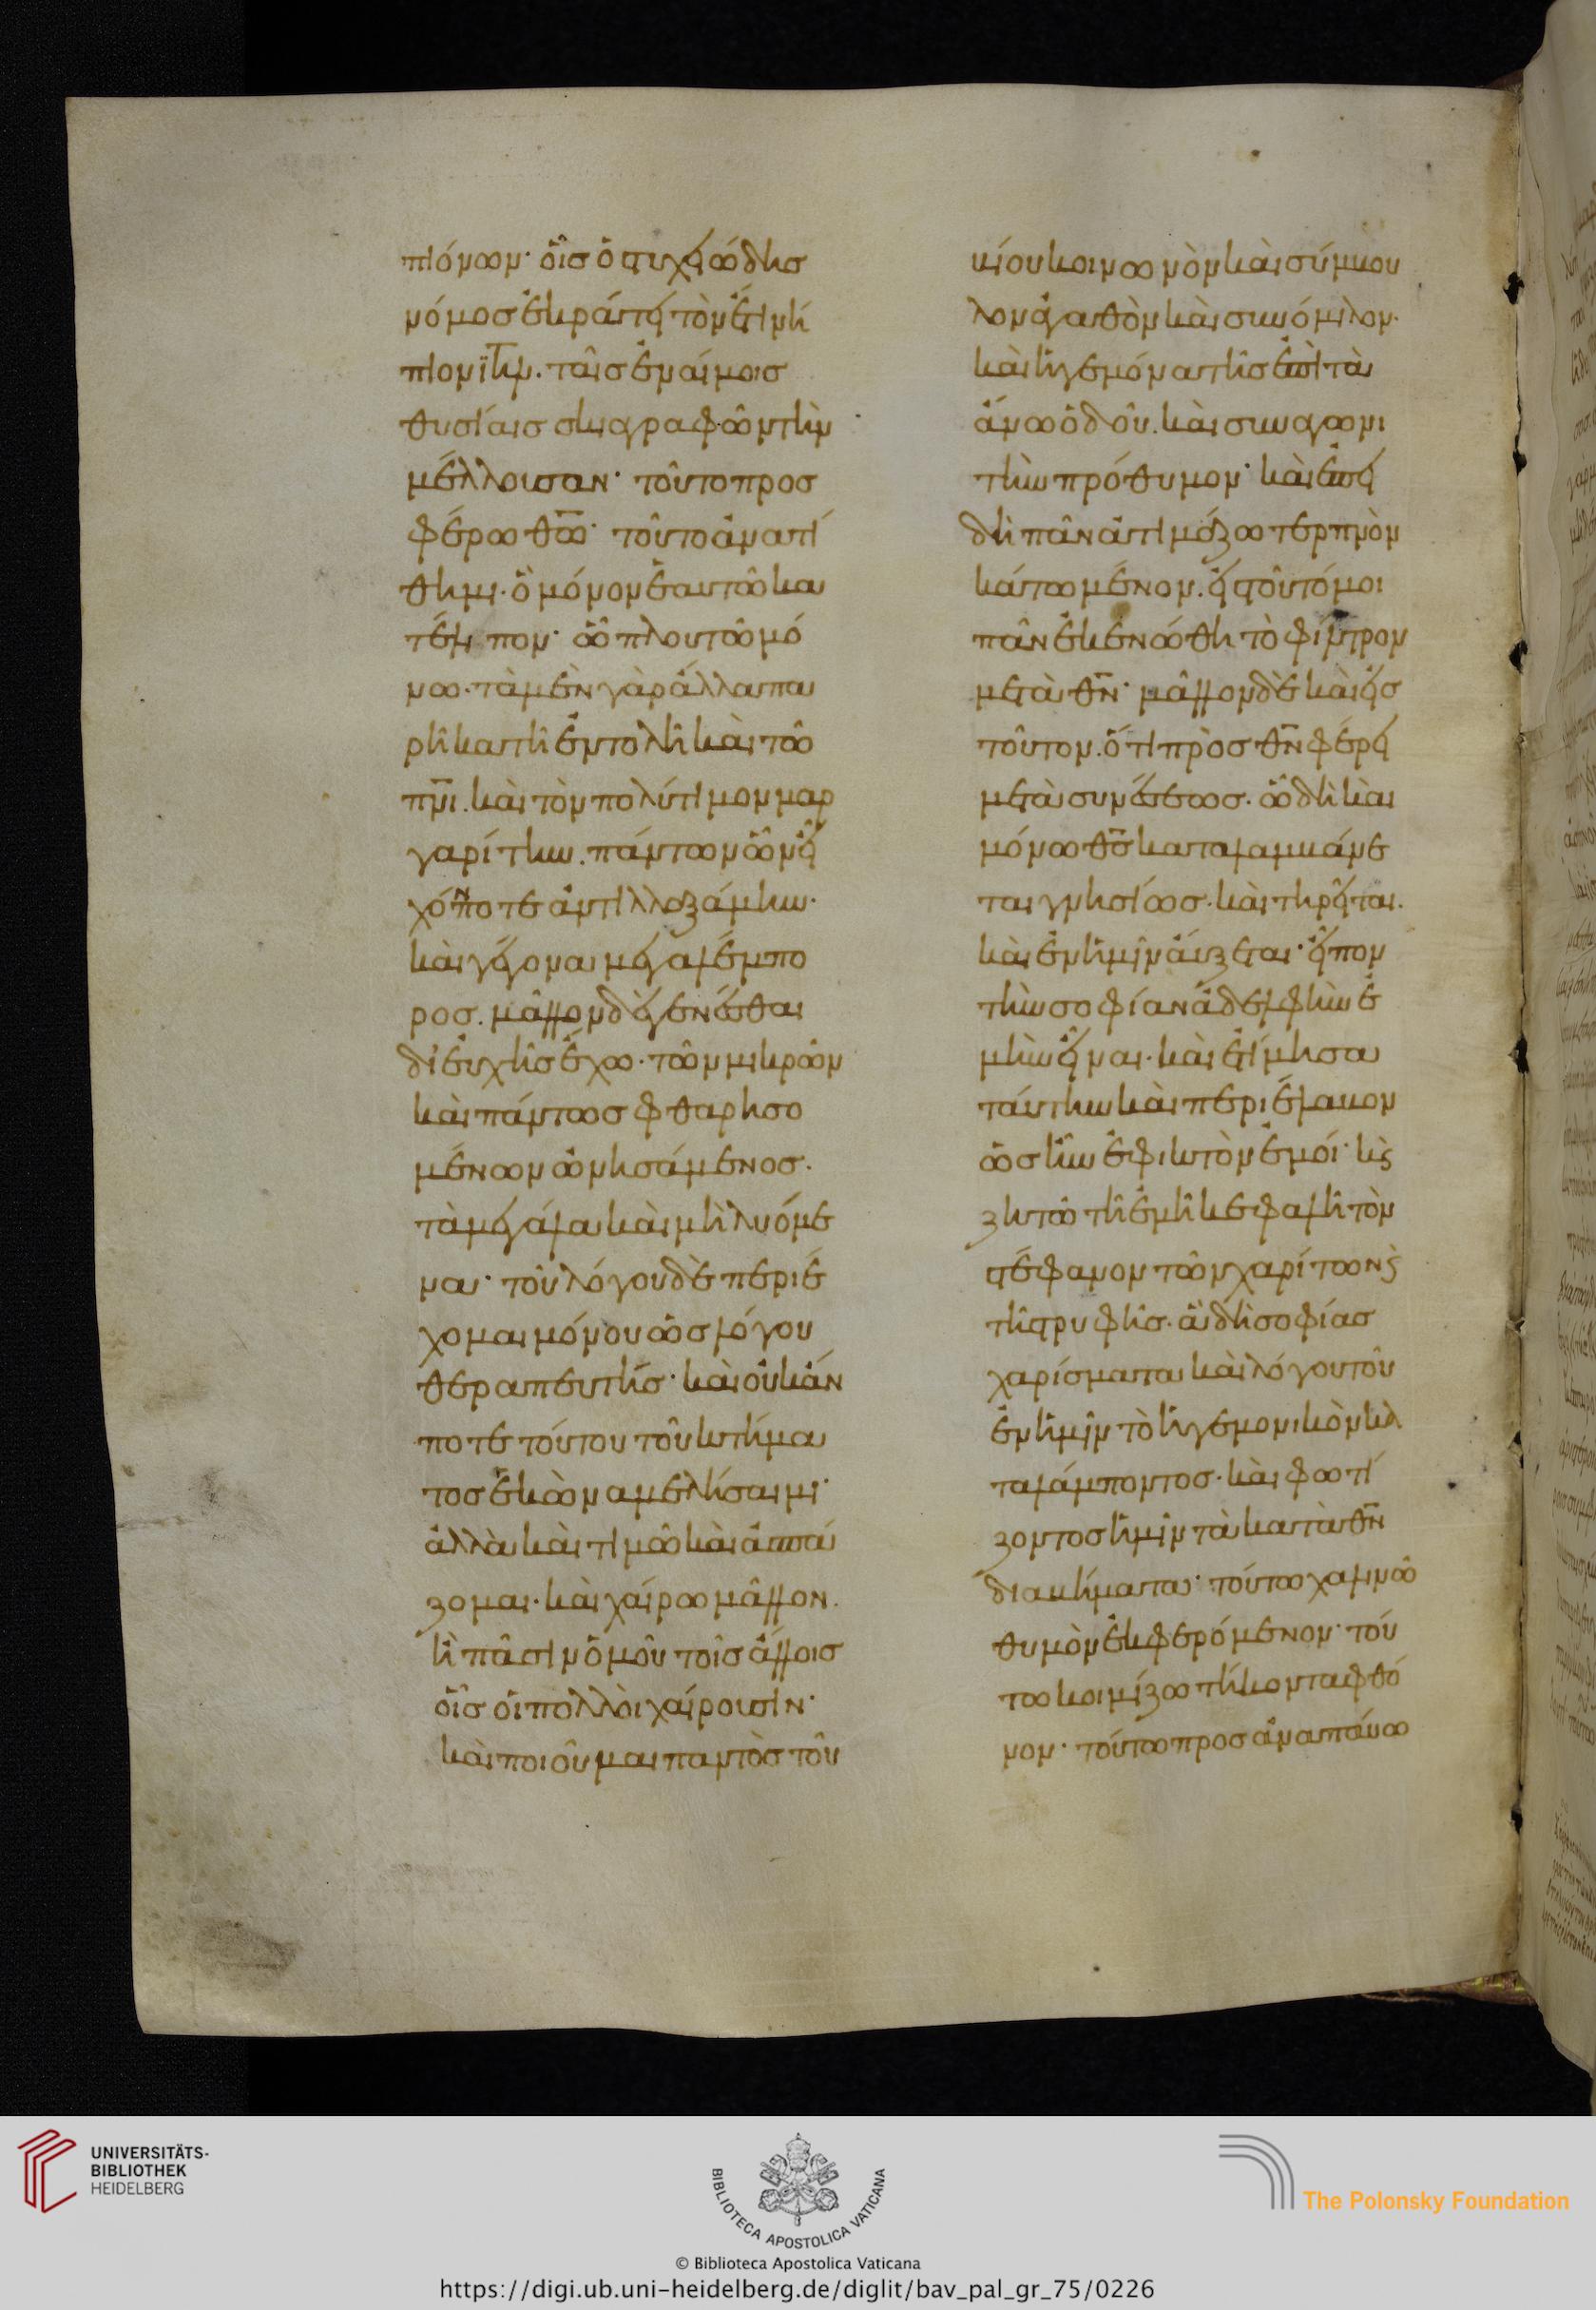 πιόνων· οἷς ὁ στυχειώδης
νόμος ἐκράτει τὸν ἔτι νή
πιον ἰηλ. ταῖς ἐναίμοις
θυσίαις σκιαγραφῶν τὴν
μέλλουσαν· τοῦτο προσ
φέρω θω· τοῦτο ἀνατί
θημι· ὃ μόνον ἐαυτῶ κα
τέλιπον· ὧ πλουτῶ μό
νω· τὰ μὲν γὰρ ἄλλα πα
ρῆκα τῆ ἐντολῆ καὶ τῶ
πνι. καὶ τὸν πολύτιμον μαρ
γαρίτην. πάντων ὧν εἶ
χόν ποτε ἀντηλλαξάμην·
καὶ γέγονα μεγαλέμπο
ρος. μᾶλλον δὲ γενέσθαι
δι εὐχῆς ἔχω· τῶν μικρῶν
καὶ πάντως φθαρησο
μένων ὠνησάμενος.
τὰ μεγάλα καὶ μὴ λυόμε
να· τοῦ λόγου δὲ περιέ
χομαι μόνου ὡς λόγου
θεραπευτής· καὶ οὐκ ἄν
ποτε τούτου τοῦ κτήμα
τος ἑκὼν αμελήσαιμι·
ἀλλὰ καὶ τιμῶ καὶ ἀσπά
ζομαι· καὶ χαίρω μᾶλλον.
ἢ πᾶσιν ὁμοῦ τοῖς ἄλλοις
οἷς οἱ πολλοὶ χαίρουσιν·
καὶ ποιοῦμαι παντὸς τοῦ
βίου κοινωνὸν καὶ σύμβου
λον ἀγαθὸν καὶ συνόμιλον·
καὶ ἡγεμόνα τῆς ἐπὶ τὰ
ἄνω ὁδοῦ. καὶ συναγωνι
στὴν πρόθυμον· καὶ ἐπεὶ
δὴ πᾶν ἀτιμάζω τερπνὸν
κάτω μένον. εἰς τοῦτό μοι
πᾶν ἐκενώθη τὸ φίλτρον
μετὰ θν· μᾶλλον δὲ καὶ εἰς
τοῦτον. ὅτι πρὸς θν φέρει
μετὰ συνέσεως. ὧ δὴ καὶ
μόνω θς καταλαμβάνε
ται γνησίως· καὶ τηρεῖται.
καὶ ἐν ἡμῖν αὔξεται· εἶπον
τὴν σοφίαν ἀδελφὴν ἐ
μὴν εἶναι· καὶ ἐτίμησα
ταύτην καὶ περιέλαβον
ὡς ἦν ἐφικτὸν ἐμοί· κς
ζητῶ τῆ ἐμῆ κεφαλῆ τὸν
στέφανον τῶν χαρίτων ς
τῆς τρυφῆς· ἃ δὴ σοφίας
χαρίσματα καὶ λόγου τοῦ
ἐν ἡμῖν τὸ ἡγεμονικὸν κα
ταλάμποντος· καὶ φωτί
ζοντος ἡμῖν τὰ κατὰ θν
διαβήματα· τούτω χαλινῶ
θυμὸν ἐκφερόμενον· τού
τω κοιμίζω τήκοντα φθό
νον· τούτω προσαναπαύω